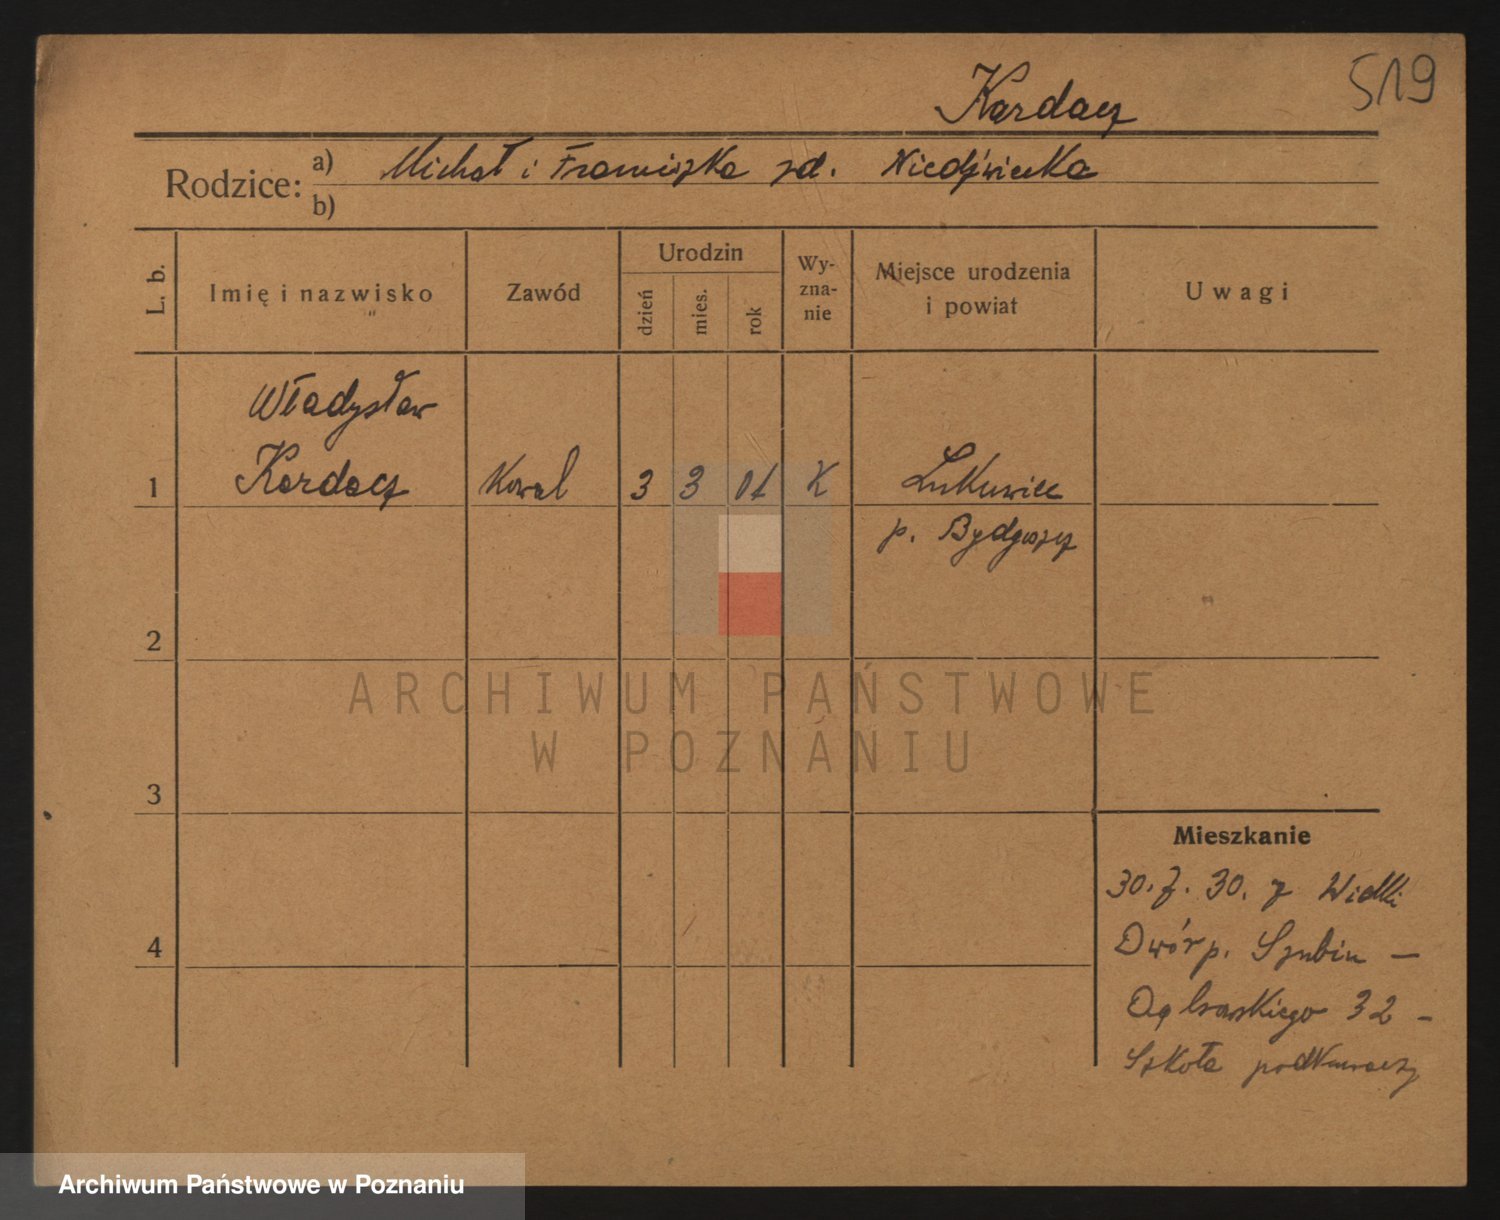 519
Kardacz
Rodzice: a) Michał i Franciszka zd. Niedźwiecka
b)
L. b. Imię i nazwisko Zawód Urodzin dzień mies. rok Wy-zna-nie Miejsce urodzenia i powiat Uwagi
Władysław
1 Kardacz Kowal 3 3 01 K
p. Bydgoszcz
2
ARCHIWUM PAŃSTWOWE
W POZNANIU
3
Mieszkanie
30. 7. 30. z Wielki
4 Dwór p. Szubin –
Dąbrowskiego 32 –
Szkoła podkuwaczy
Archiwum Państwowe w Poznaniu